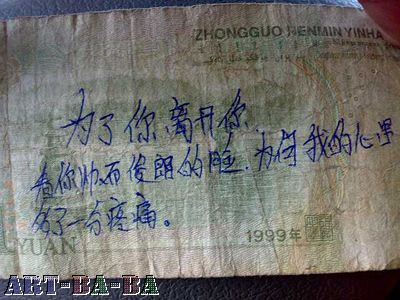 ZHONGGUO RENMIN YINHA
为了你离开你
看你帅而俊朗的脸.为何我的心里
多了一分疼痛。
YUAN
1999年
ART-BA-BA